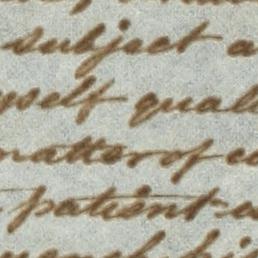 subject a
yself qual
matter of c
patient